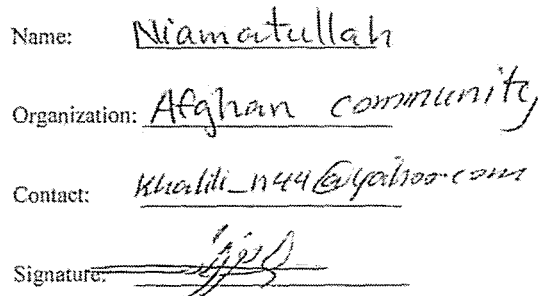 Name: Niamatullah
Organization: Afghan community
Contact: Khalili_n44@yahoo.com
Signature: